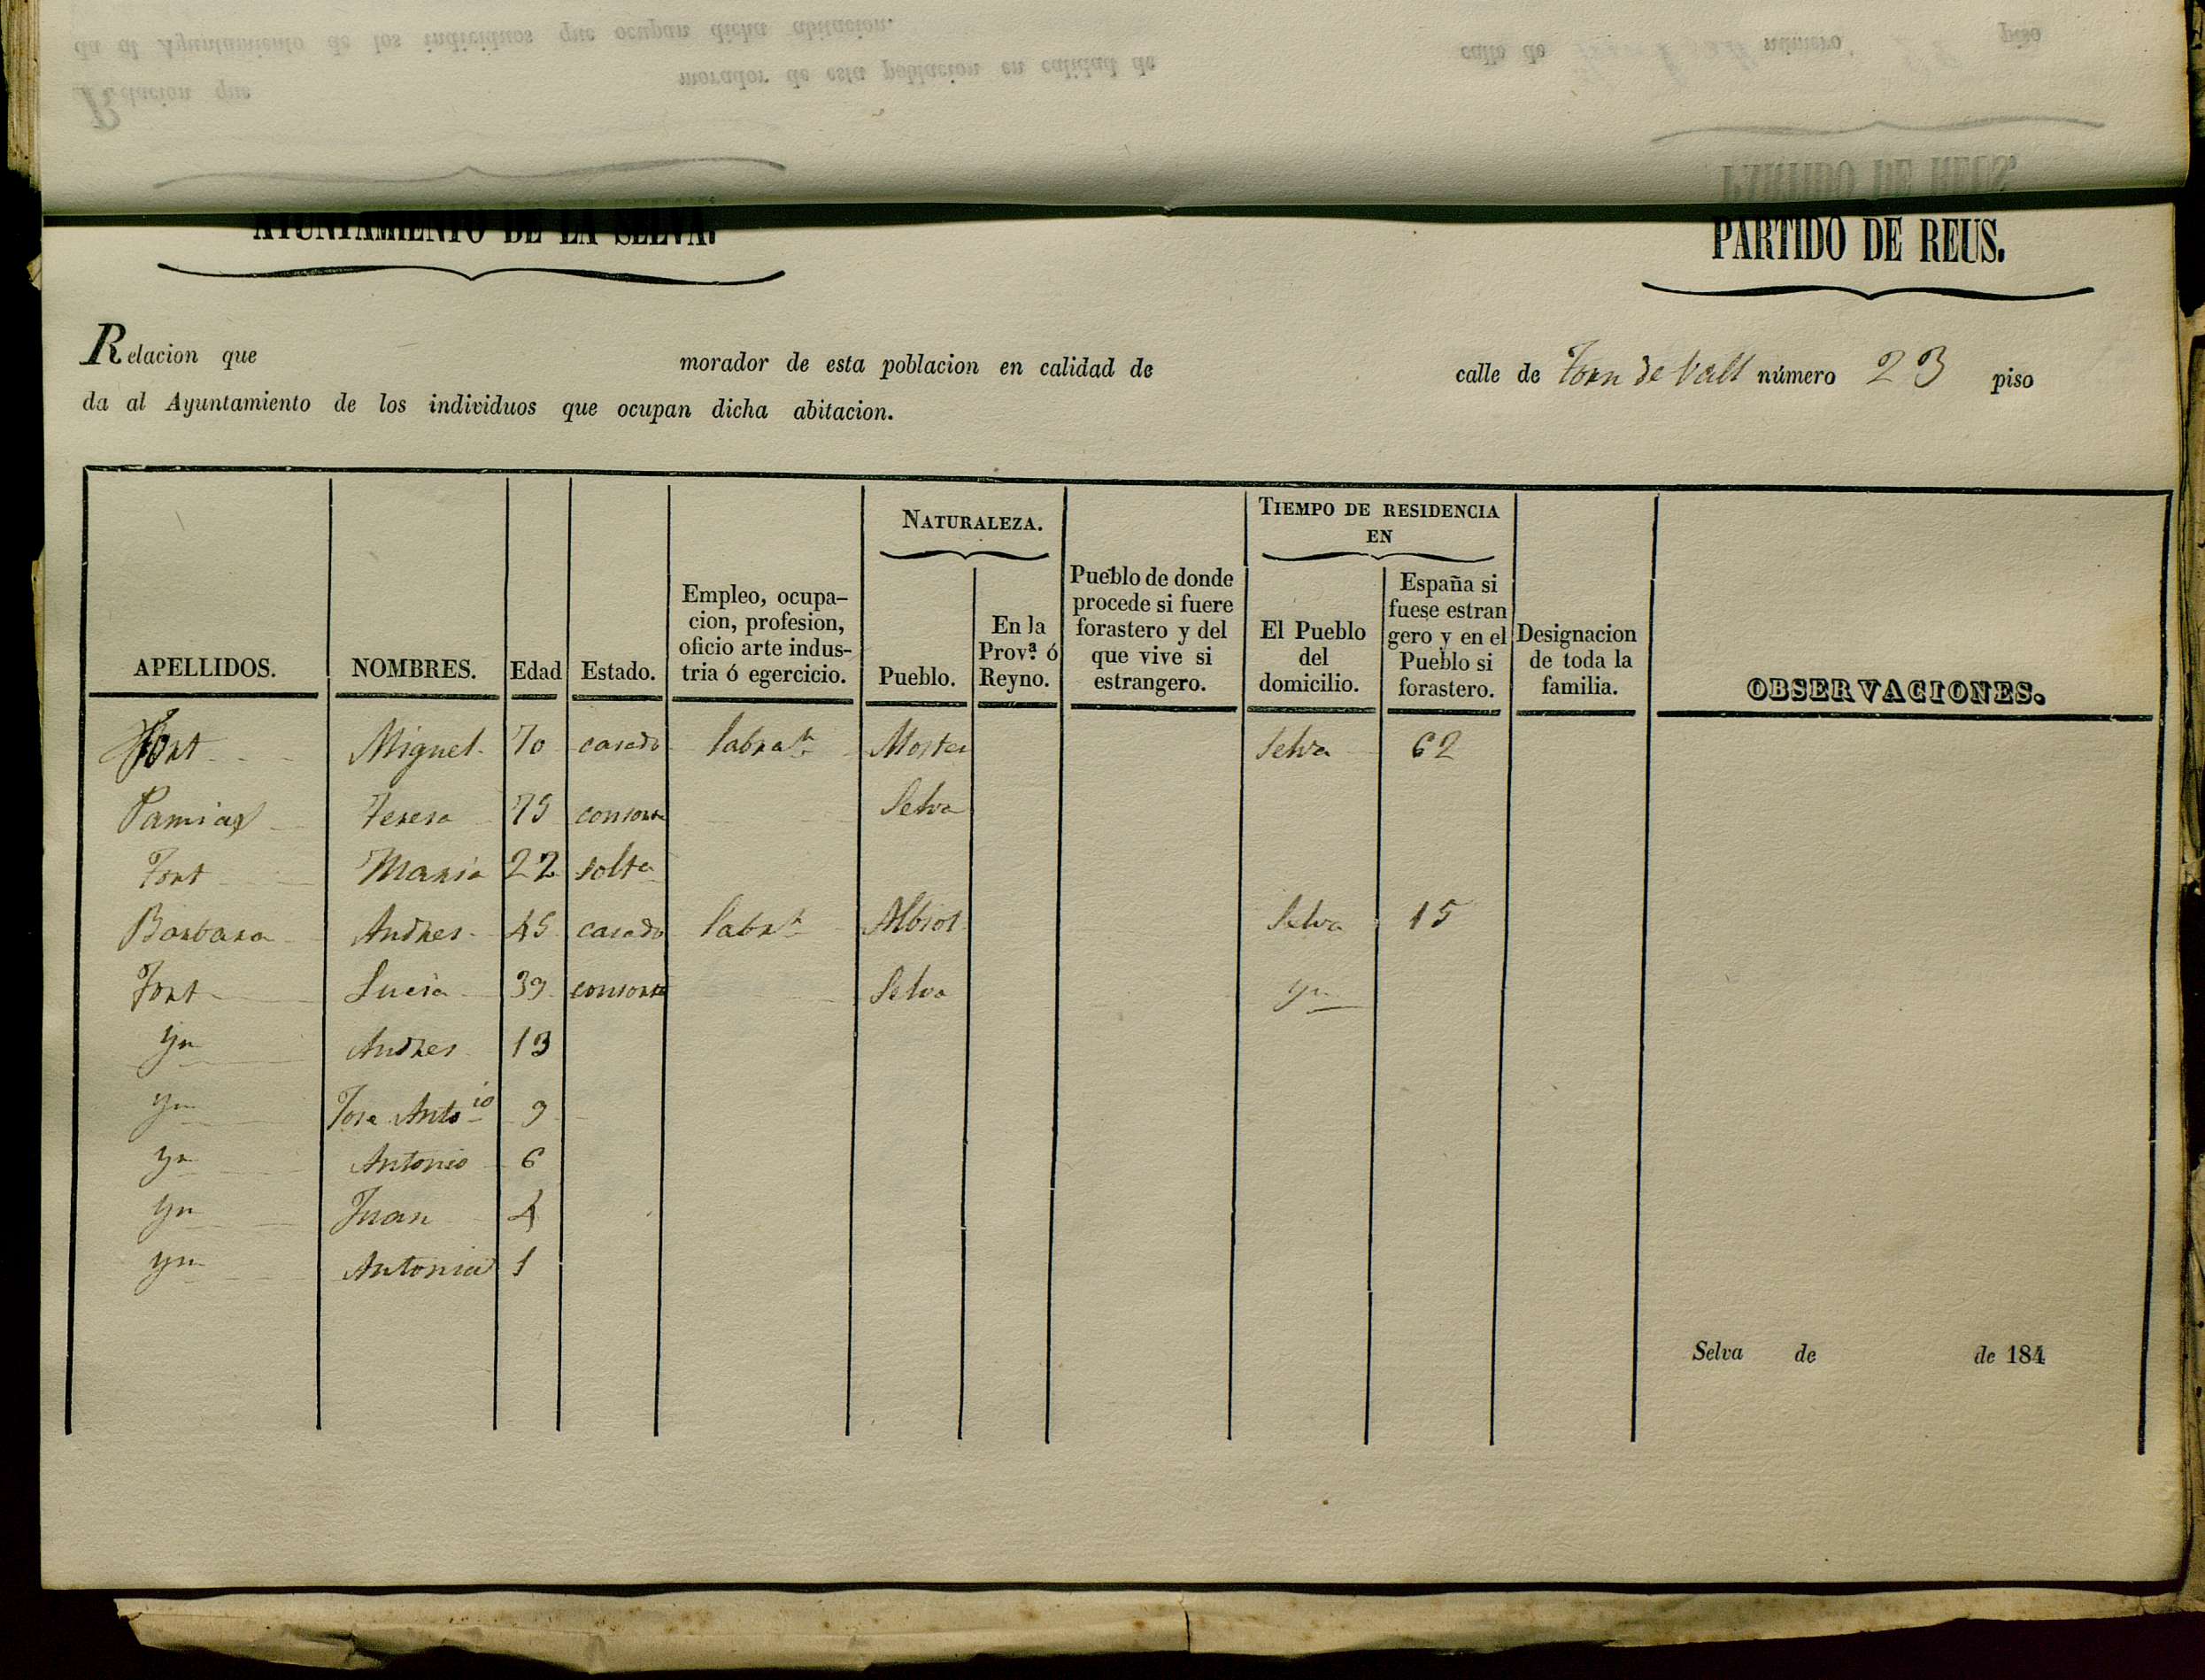 AYUNTAMIENTO DE LA SELVA.
PARTIDO DE REUS.
Relacion que morador de esta poblacion en calidad de calle de Forn de Vall número 23 piso
da al Ayuntamiento de los individuos que ocupan dicha abitacion.
APELLIDOS. NOMBRES. Edad Estado. Empleo, ocupa-
cion, profesion,
oficio arte indus-
tria ó egercicio.
NATURALEZA.
Pueblo. En la
Prov.ª ó
Reyno.
Pueblo de donde
procede si fuere
forastero y del
que vive si
estrangero.
TIEMPO DE RESIDENCIA
EN
El Pueblo
del
domicilio.
España si
fuese estran
gero y en el
Pueblo si
forastero.
Designacion
de toda la
familia.
OBSERVACIONES.
Font Miguel 70 casado labra.r Moster Selva 62
Pamias Teresa 75 consorte Selva
Font Maria 22 solta
Barbara Andres 45 casado labr.r Albiol Selva 15
Font Lucia 39 consorte Selva yn
yn Andres 13
yn Jose Anto.io 9
yn Antonio 6
yn Juan 4
yn Antonia 1
Selva de de 184